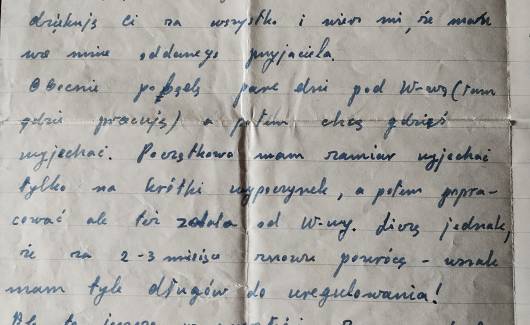 dziękuję Ci za wszystko i wierz mi, że masz
we mnie oddanego przyjaciela.
Obecnie pobędę parę dni pod W-wą (tam
gdzie pracuję) a potem chcę gdzieś
wyjechać. Początkowo mam zamiar wyjechać
tylko na krótki wypoczynek, a potem popra-
cować ale też zdala od W-wy. Liczę jednak,
że za 2-3 miesiące znowu powrócę - wszak
mam tyle długów do uregulowania!